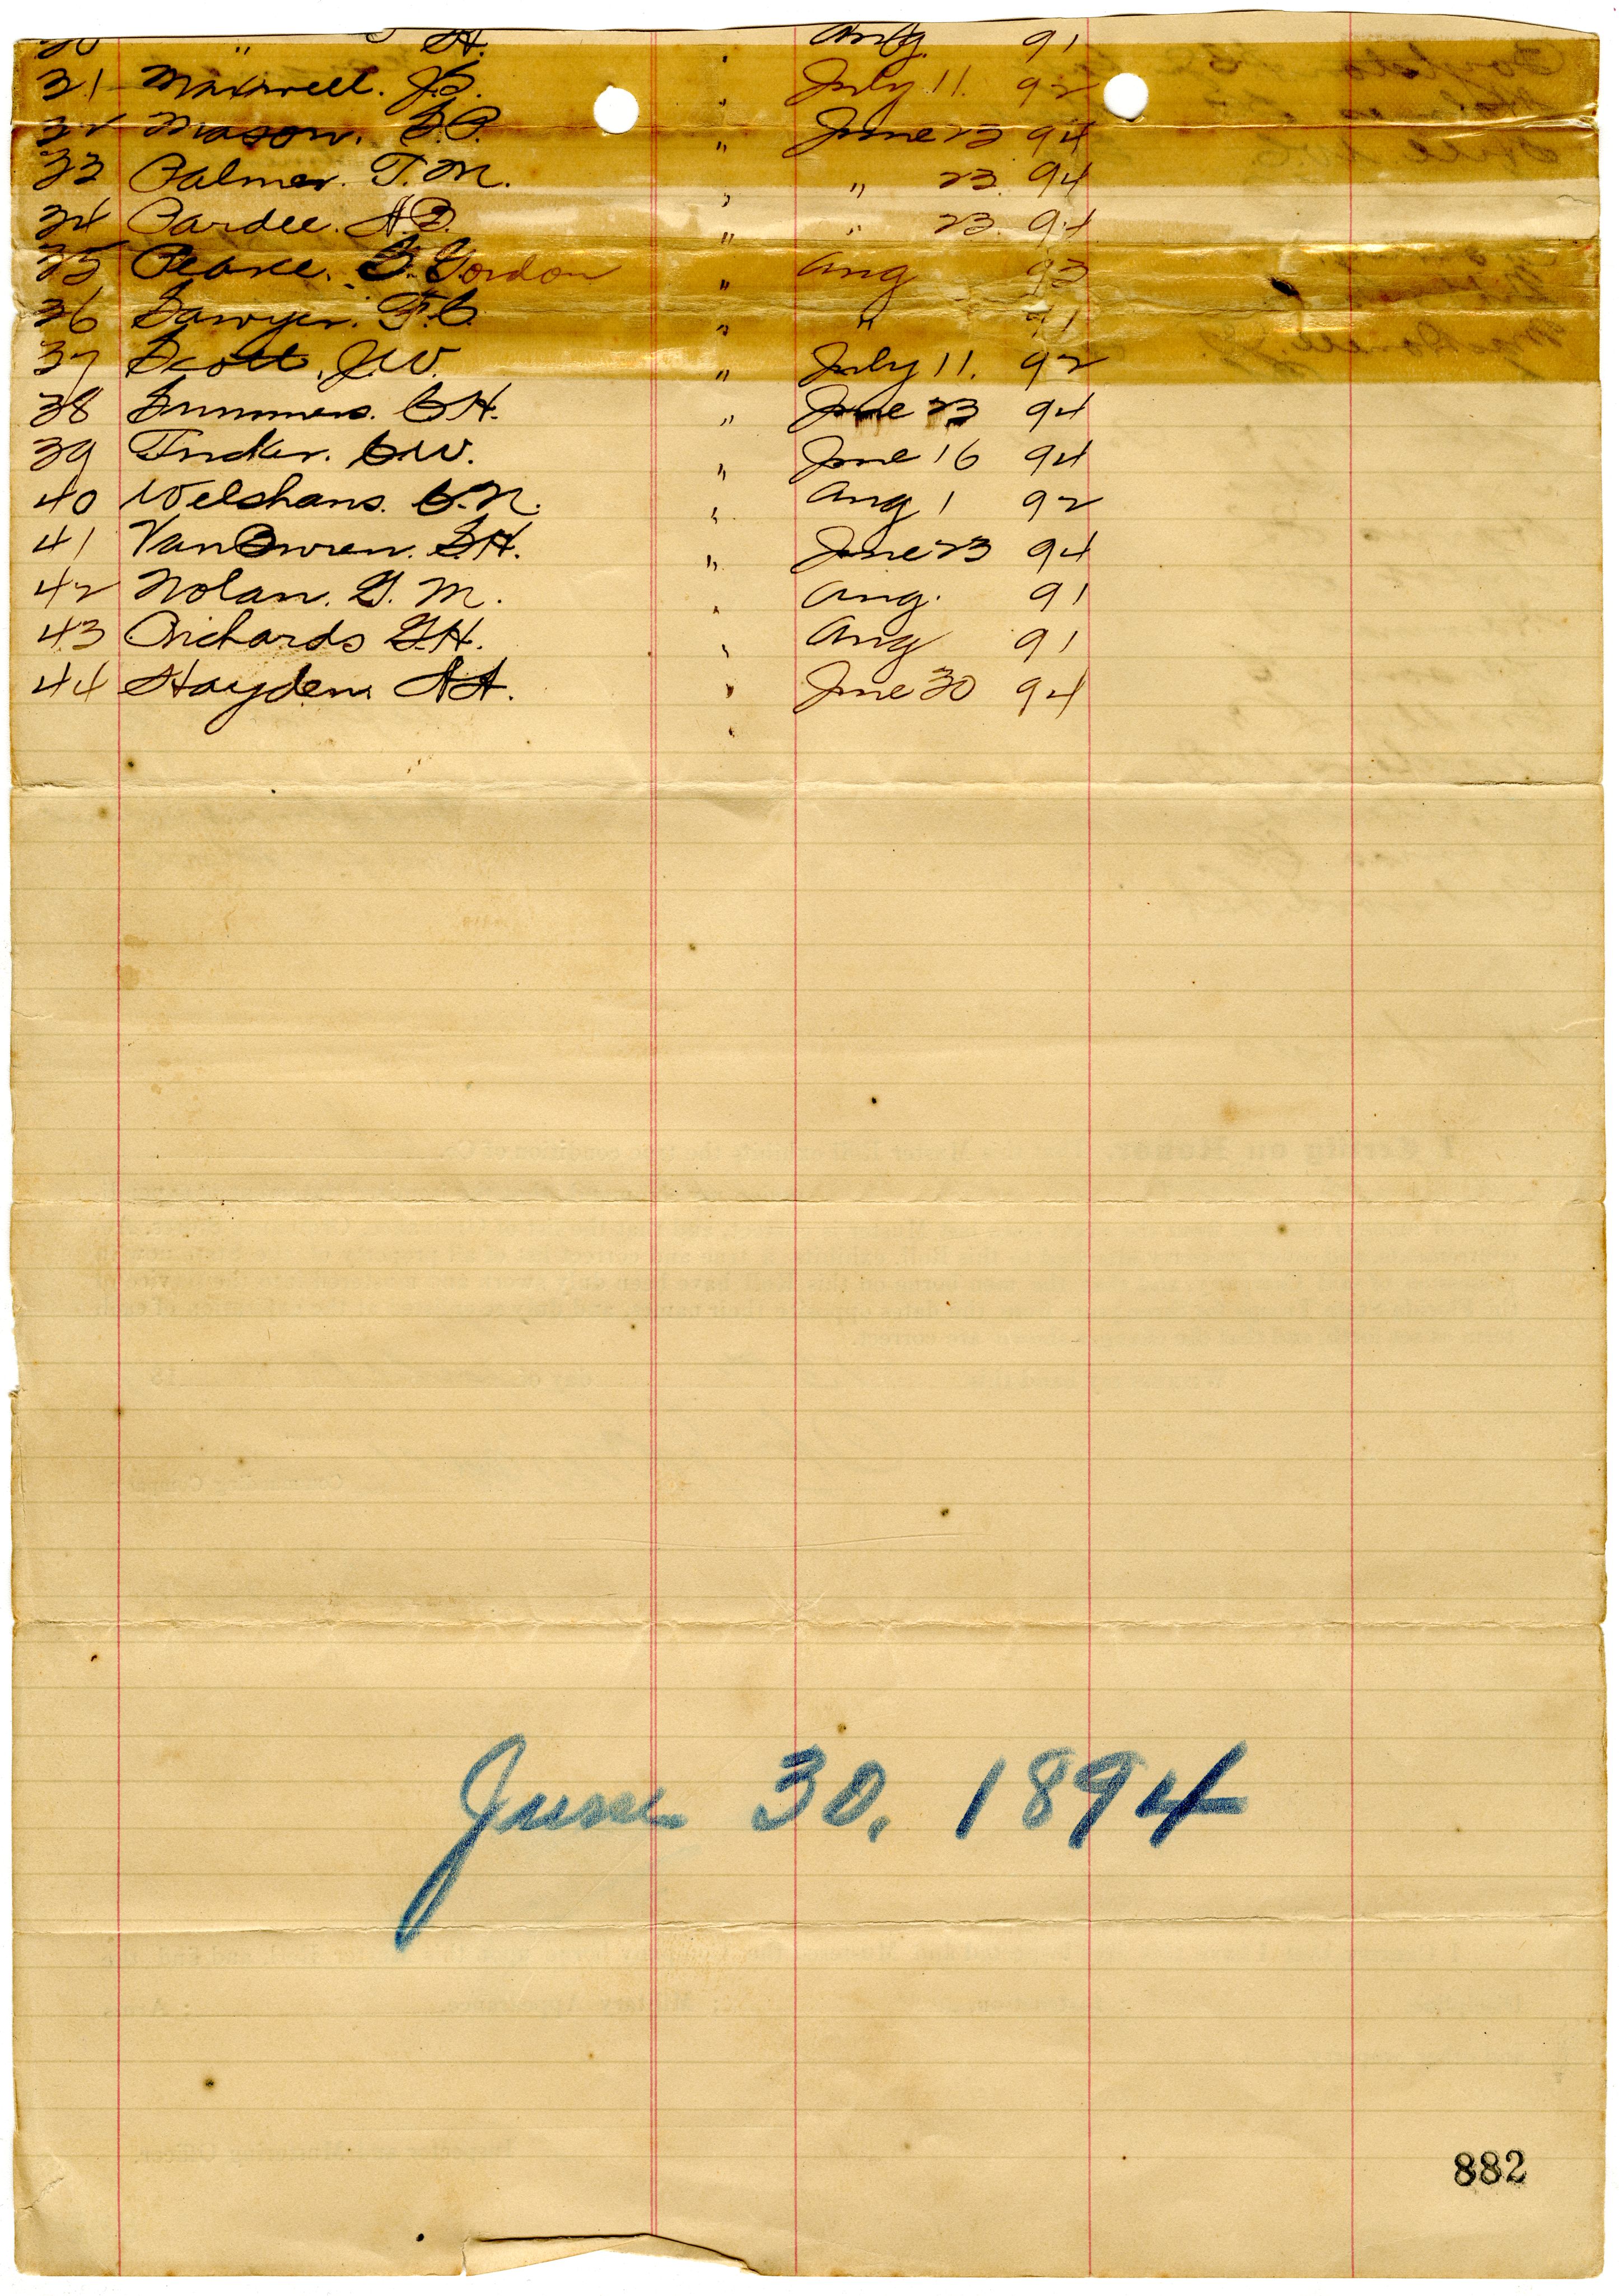 30 " H. Aug. 91
31 Maxwell. J.S. " July 11. 92
32 Mason. S.P. " June 23 94
33 Palmer. T.M. " " 23. 94
34 Pardee. A.D. " " 23. 94
35 Pearce. G. Gordon " Aug 93
36 Sawyer. F.C. " " 91
37 Scott. J.W. " July 11. 92
38 Summers. C.H. " June 23 94
39 Tucker. C.W. " June 16 94
40 Welshans. C.N. " Aug 1 92
41 VanBuren. S.H. " June 23 94
42 Nolan. G.M. " Aug. 91
43 Richards G.H. " Aug 91
44 Hayden. A.A. " June 30 94
"
June 30, 1894
882